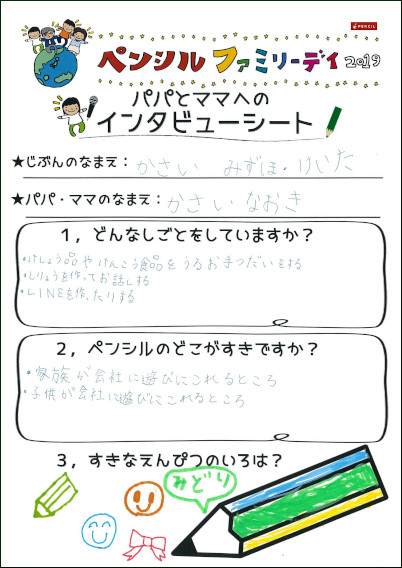 PENCIL
ペンシル ファミリーデイ 2019
パパとママへの
インタビューシート
★じぶんのなまえ：かさい みずほ・けいた
★パパ・ママのなまえ：かさい なおき
１，どんなしごとをしていますか？
・けしょう品やけんこう食品をうるおてつだいをする
・しりょうを作ってお話しする
・LINEを作ったりする
２，ペンシルのどこがすきですか？
・家族が会社に遊びにこれるところ
・子供が会社に遊びにこれるところ
３，すきなえんぴつのいろは？
みどり